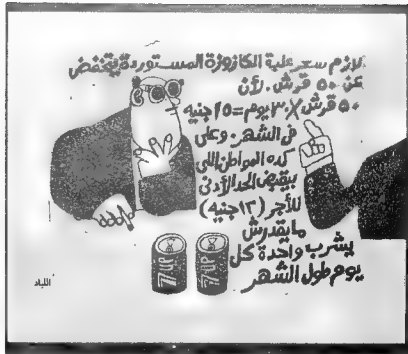 لازم سعر علبة الكازوزة المستوردة يتخفض
عن ٥٠ قرش. لأن
٥٠ قرش × ٣٠ يوم = ١٥ جنيه
فى الشهر. وعلى
كده المواطن اللى
بيقبض الحد الأدنى
للأجر (١٣ جنيه)
ما يقدرش
يشرب واحدة كل
يوم طول الشهر
7UP
7UP
اللباد